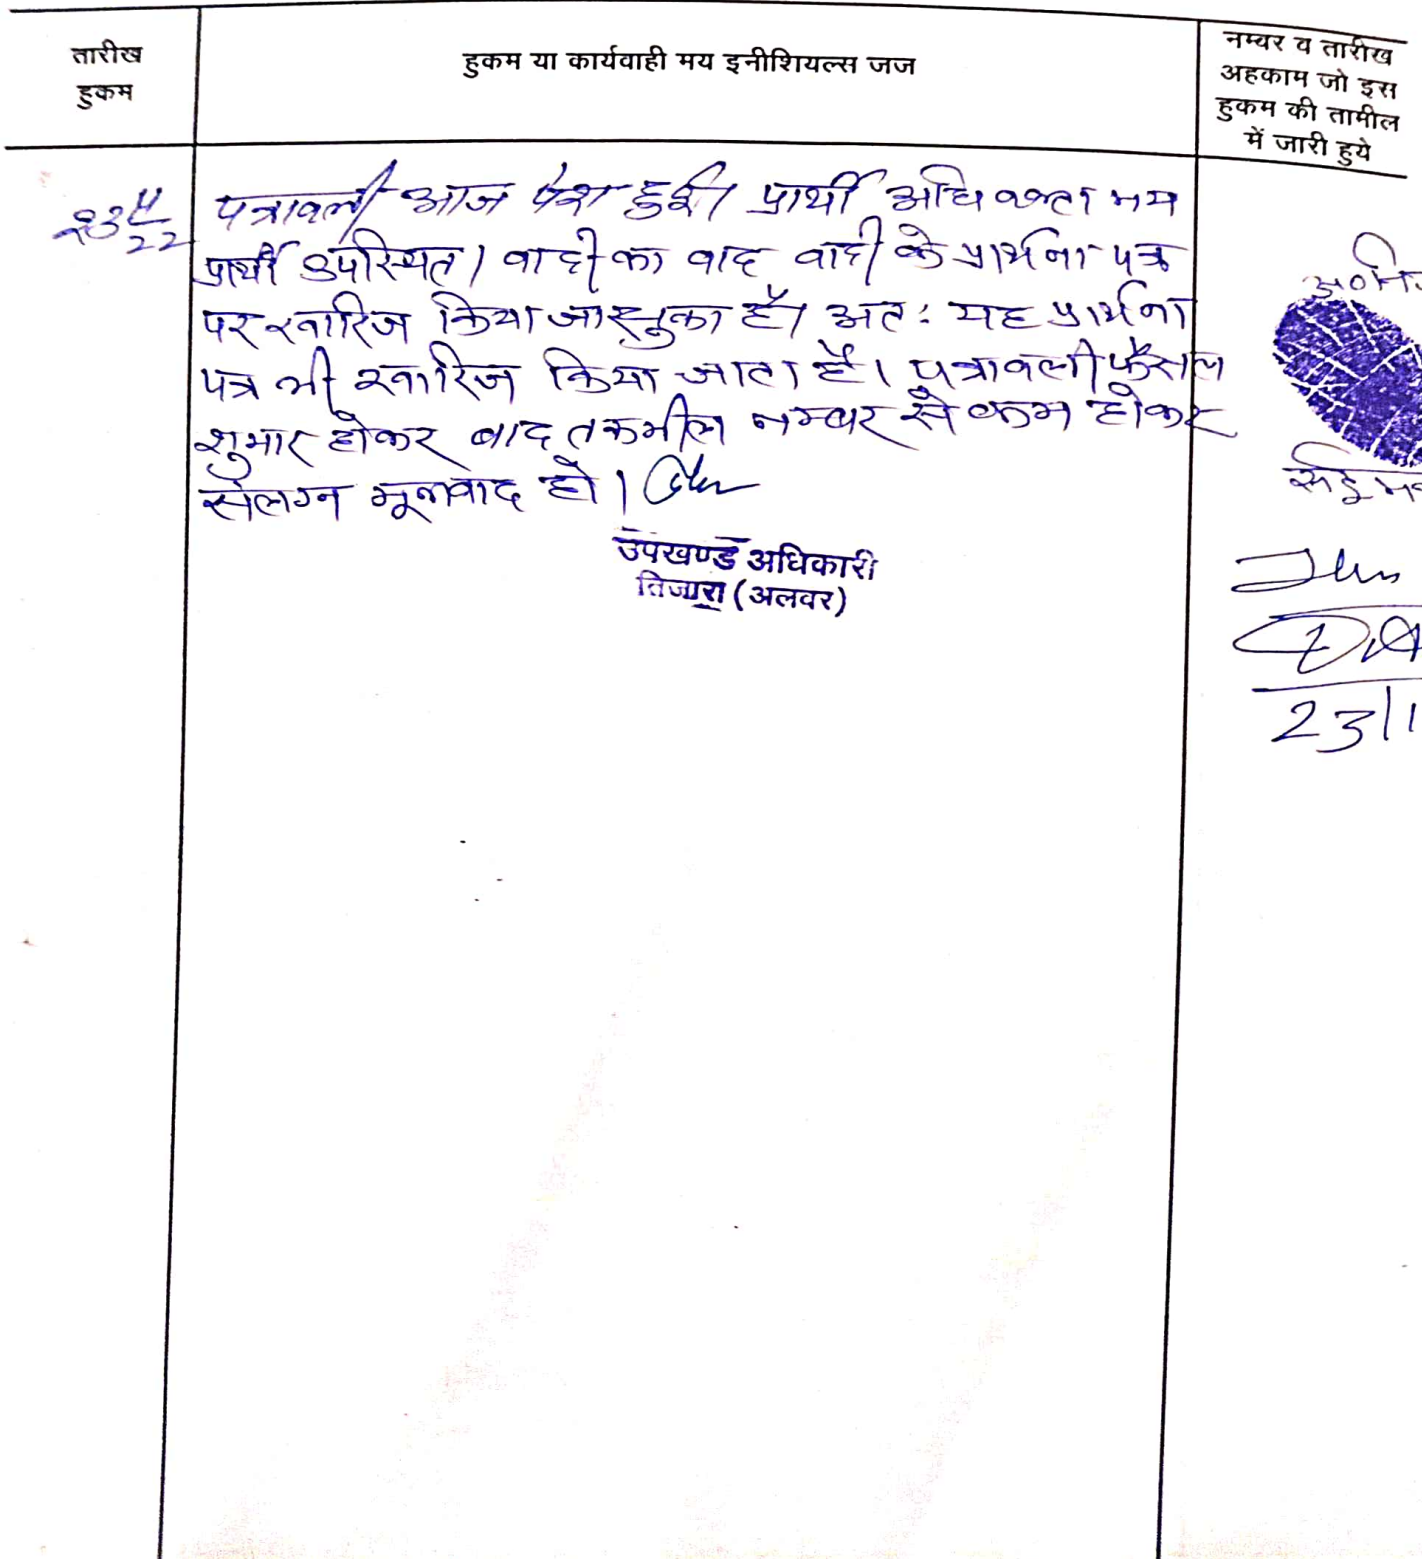 तारीख
हुकम
हुकम या कार्यवाही मय इनीशियल्स जज
नम्बर व तारीख
अहकाम जो इस
हुकम की तामील
में जारी हुये
23 11/22
पत्रावली आज पेश हुई। प्रार्थी अधिवक्ता मय
प्रार्थी उपस्थित। वादी का वाद वादी के प्रार्थना पत्र
पर खारिज किया जा चुका है। अतः यह प्रार्थना
पत्र भी खारिज किया जाता है। पत्रावली फैसल
शुमार होकर बाद तकमील नम्बर से कम होकर
संलग्न मूलवाद हो।
उपखण्ड अधिकारी
तिजारा (अलवर)
23/1